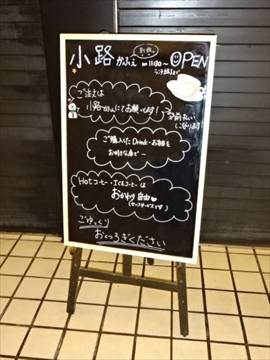 小路かふぇ 11:00〜 OPEN
ご注文は
小路かふぇにてお願いします!
ご購入した Drink・お料理を
お好きな席で〜
Hotコーヒー・ICEコーヒーは
おかわり自由♥
(セルフサービスです)
ごゆっくり
おくつろぎください